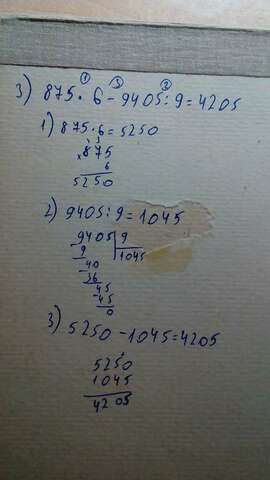 ① ③ ②
3) 875 · 6 - 9405 : 9 = 4205
1) 875 · 6 = 5250
4 3
× 875
6
5250
2) 9405 : 9 = 1045
9405 | 9
9 | 1045
- 40
36
- 45
45
0
3) 5250 - 1045 = 4205
5250
1045
4205